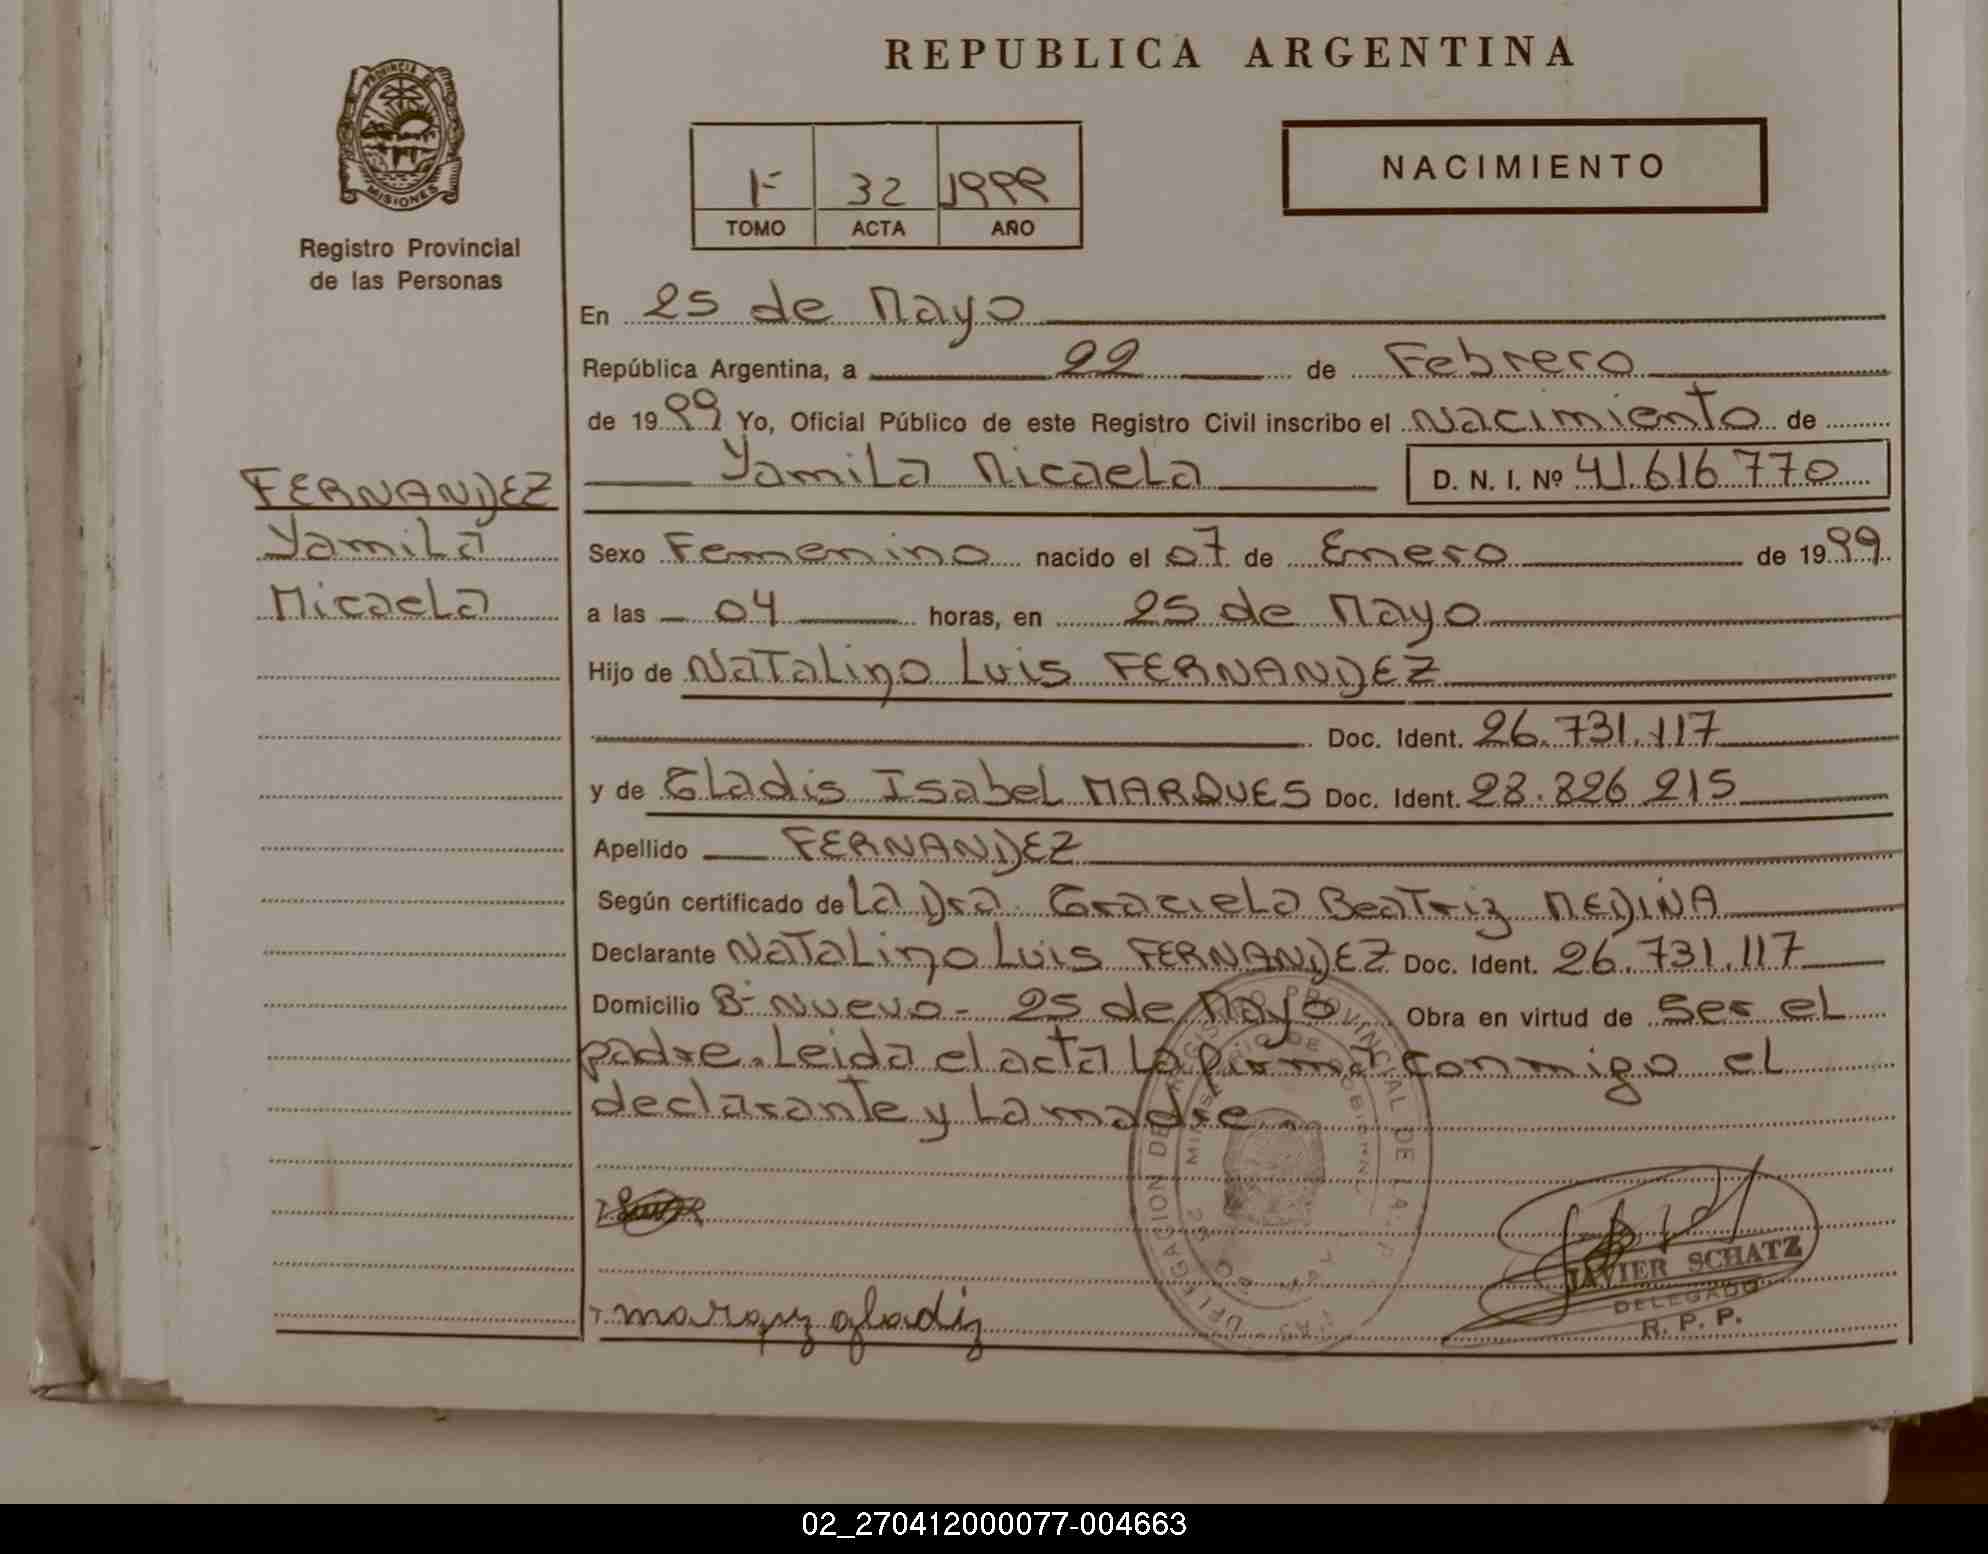 REPUBLICA ARGENTINA
PROVINCIA DE
MISIONES
Registro Provincial
de las Personas
1F 32 1999
TOMO ACTA AÑO
NACIMIENTO
En 25 de Mayo
República Argentina, a 22 de Febrero
de 1999 Yo, Oficial Público de este Registro Civil inscribo el Nacimiento de
Yamila Micaela D. N. I. Nº 41.616.770
FERNANDEZ
Yamila
Micaela
Sexo Femenino nacido el 07 de Enero de 1999
a las 04 horas, en 25 de Mayo
Hijo de Natalino Luis FERNANDEZ
Doc. Ident. 26.731.117
y de Gladis Isabel MARQUES Doc. Ident. 28.826.215
Apellido FERNANDEZ
Según certificado de La Dra. Graciela Beatriz MEDINA
Declarante Natalino Luis FERNANDEZ Doc. Ident. 26.731.117
Domicilio Bº Nuevo - 25 de Mayo Obra en virtud de ser el
padre. Leida el acta la firma conmigo el
declarante y la madre.
DELEGACION DEL REGISTRO PROVINCIAL DE LAS
MINISTERIO DE GOBIERNO
marqz gladiz
JAVIER SCHATZ
DELEGADO
R. P. P.
02_270412000077-004663